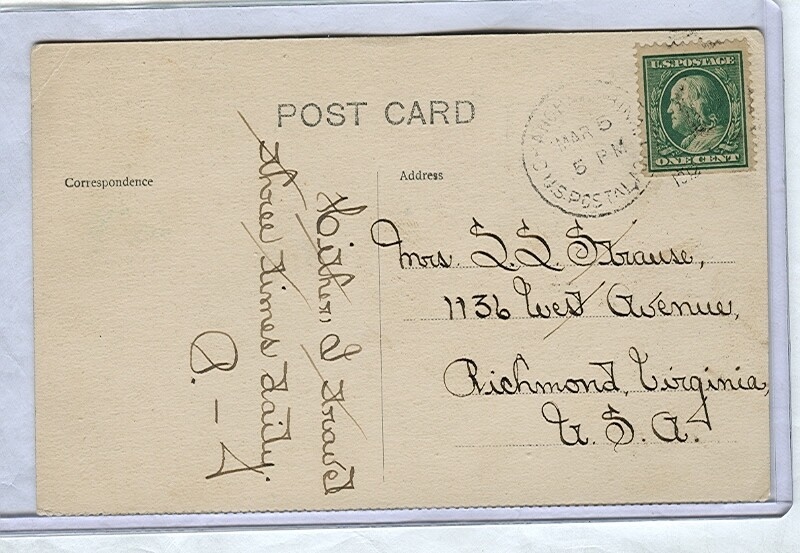 POST CARD
U.S. POSTAGE
ONE CENT
MAR 5
5 PM
U.S. POSTAL
Correspondence
Address
Hither, I travel
three times daily.
Mrs. S. S. Strause,
1136 West Avenue,
Richmond, Virginia,
U. S. A.